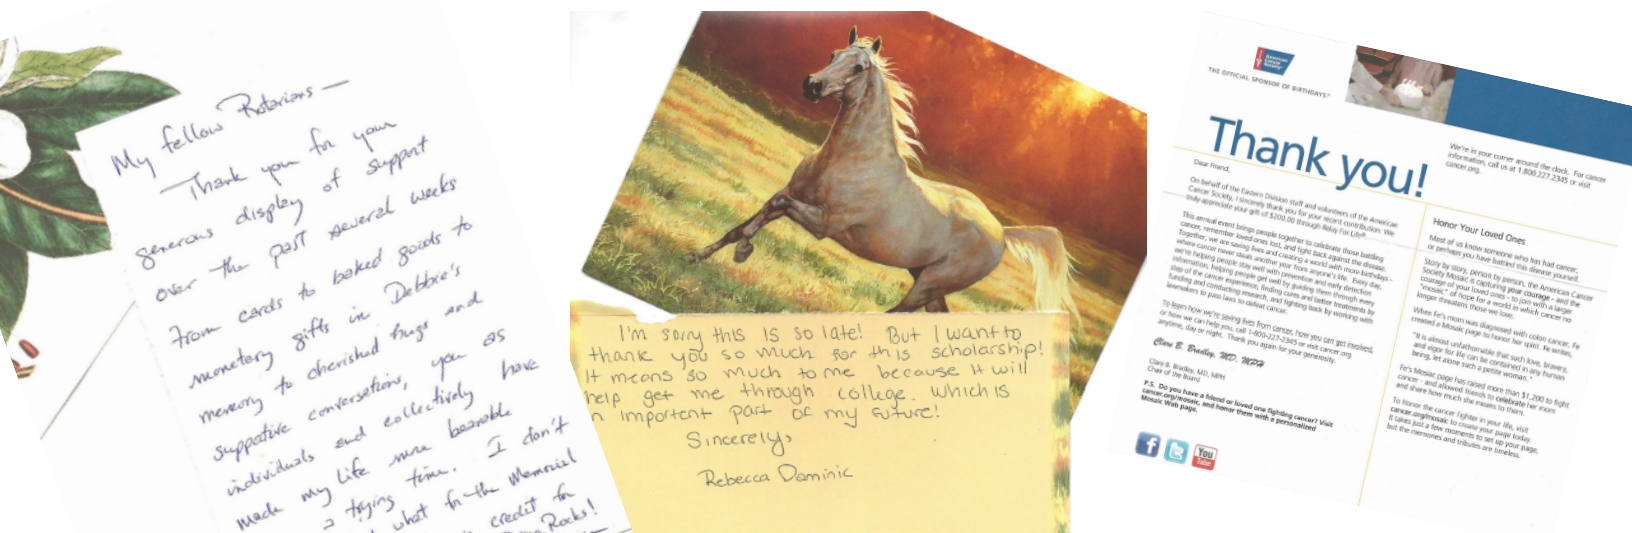 My fellow Rotarians —
Thank you for your
generous display of support
over the past several weeks
From cards to baked goods to
monetary gifts in Debbie's
memory to cherished hugs and
supportive conversations, you as
individuals and collectively have
made my life more bearable
a trying time. I don't
what for the Memorial
credit for
Rocks!
I'm sorry this is so late! But I want to
thank you so much for this scholarship!
It means so much to me because it will
help get me through college. Which is
n important part of my future!
Sincerely,
Rebecca Dominic
American
Cancer
Society
THE OFFICIAL SPONSOR OF BIRTHDAYS
Thank you!
We're in your corner around the clock. For cancer
information, call us at 1.800.227.2345 or visit
cancer.org.
Dear Friend,
On behalf of the Eastern Division staff and volunteers of the American
Cancer Society, I sincerely thank you for your recent contribution. We
truly appreciate your gift of $200.00 through Relay For Life®.
This annual event brings people together to celebrate those battling
cancer, remember loved ones lost, and fight back against the disease.
Together, we are saving lives and creating a world with more birthdays -
where cancer never steals another year from anyone's life. Every day,
we're helping people stay well with prevention and early detection
information, helping people get well by guiding them through every
step of the cancer experience, finding cures and better treatments by
funding and conducting research, and fighting back by working with
lawmakers to pass laws to defeat cancer.
To learn how we're saving lives from cancer, how you can get involved,
or how we can help you, call 1-800-227-2345 or visit cancer.org
anytime, day or night. Thank you again for your generosity.
Clare B. Bradley, MD, MPH
Clare B. Bradley, MD, MPH
Chair of the Board
P.S. Do you have a friend or loved one fighting cancer? Visit
cancer.org/mosaic, and honor them with a personalized
Mosaic Web page.
f
t
You
Tube
Honor Your Loved Ones
Most of us know someone who has had cancer,
or perhaps you have battled this disease yourself.
Story by story, person by person, the American Cancer
Society Mosaic is capturing your courage - and the
courage of your loved ones - to join with a larger
"mosaic" of hope for a world in which cancer no
longer threatens those we love.
When Fe's mom was diagnosed with colon cancer, Fe
created a Mosaic page to honor her spirit. Fe writes,
"It is almost unfathomable that such love, bravery,
and vigor for life can be contained in any human
being, let alone such a petite woman."
Fe's Mosaic page has raised more than $1,200 to fight
cancer - and allowed friends to celebrate her mom
and share how much she means to them.
To honor the cancer fighter in your life, visit
cancer.org/mosaic to create your page today.
It takes just a few moments to set up your page,
but the memories and tributes are timeless.